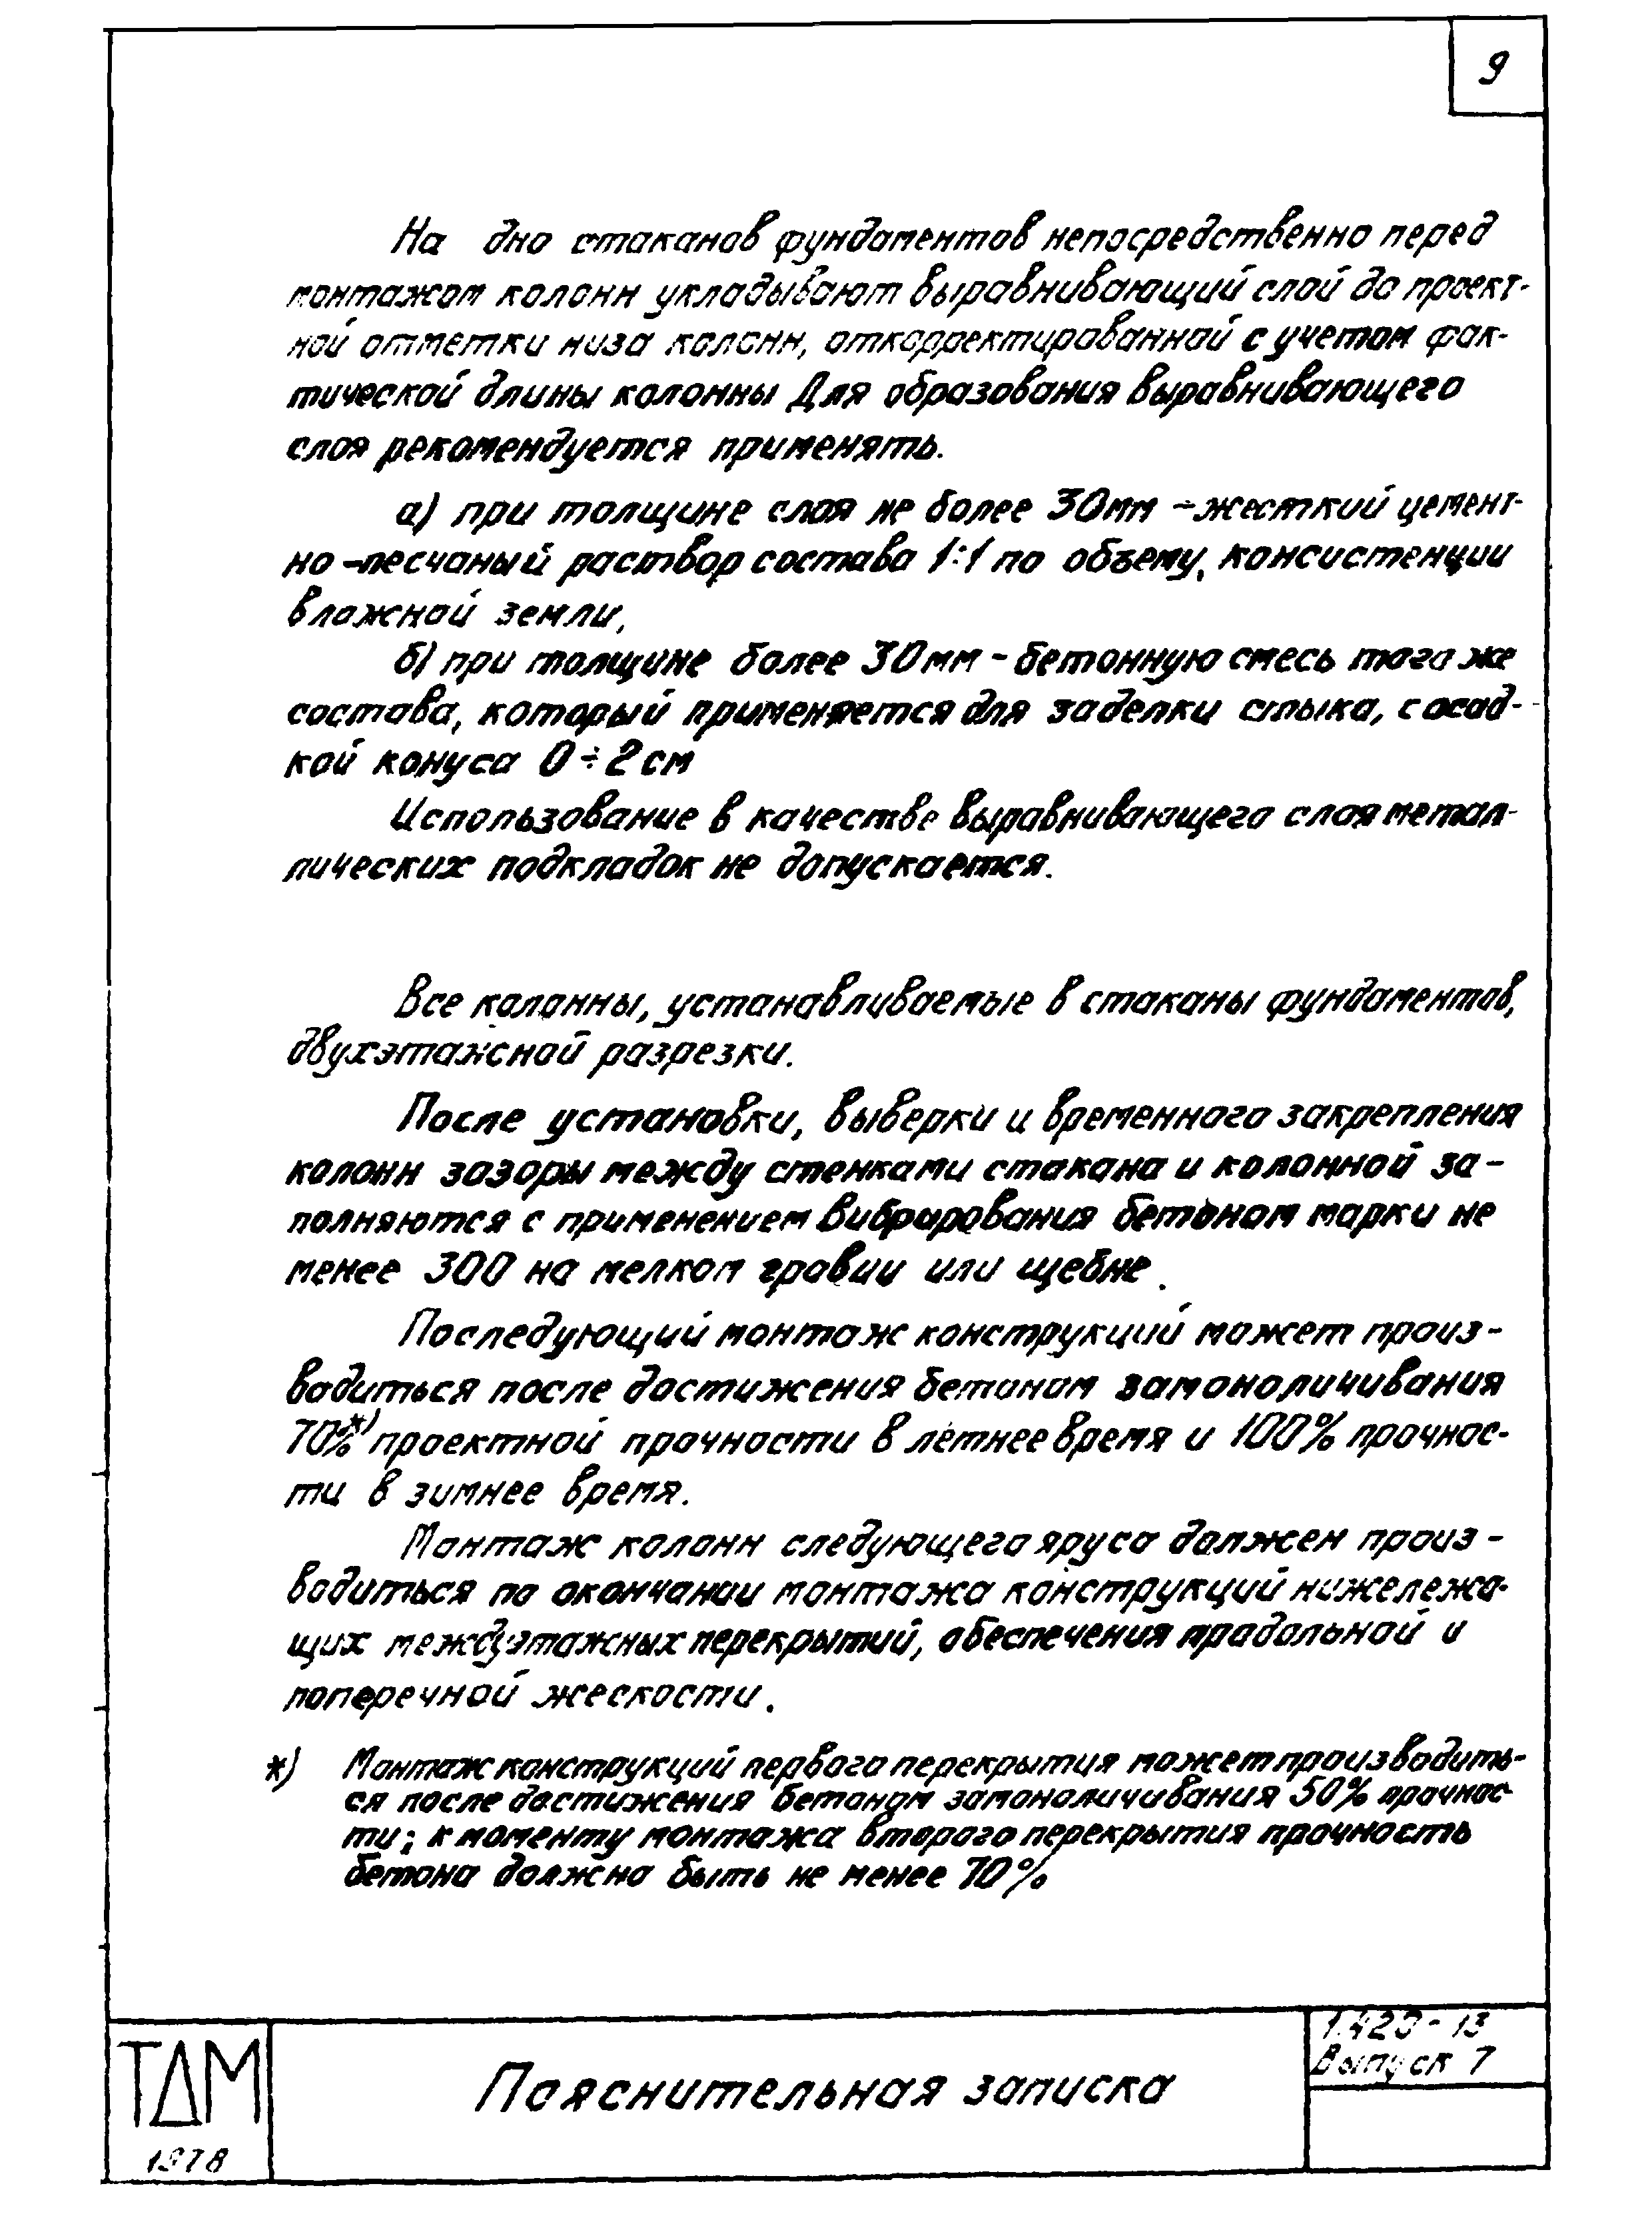 9
На дно стаканов фундаментов непосредственно перед
монтажом колонн укладывают выравнивающий слой до проект-
ной отметки низа колонн, откорректированной с учетом фак-
тической длины колонны Для образования выравнивающего
слоя рекомендуется применять.
а) при толщине слоя не более 30мм - жесткий цемент-
но-песчаный раствор состава 1:1 по объему, консистенции
влажной земли,
б) при толщине более 30мм - бетонную смесь того же
состава, который применяется для заделки стыка, с осад-
кой конуса 0÷2 см
Использование в качестве выравнивающего слоя метал-
лических подкладок не допускается.
Все колонны, устанавливаемые в стаканы фундаментов,
двухэтажной разрезки.
После установки, выверки и временного закрепления
колонн зазоры между стенками стакана и колонной за-
полняются с применением вибрирования бетоном марки не
менее 300 на мелком гравии или щебне.
Последующий монтаж конструкций может произ-
водиться после достижения бетоном замоноличивания
70%*) проектной прочности в летнее время и 100% прочнос-
ти в зимнее время.
Монтаж колонн следующего яруса должен произ-
водиться по окончании монтажа конструкций нижележа-
щих междуэтажных перекрытий, обеспечения продольной и
поперечной жескости.
*) Монтаж конструкций первого перекрытия может производить-
ся после достижения бетоном замоноличивания 50% прочнос-
ти; к моменту монтажа второго перекрытия прочность
бетона должна быть не менее 70%
ТДМ
1978
Пояснительная записка
1.420-13
Выпуск 7